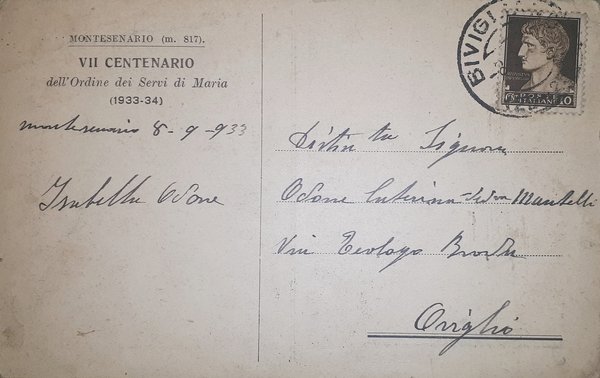 MONTESENARIO (m. 817).
VII CENTENARIO
dell'Ordine dei Servi di Maria
(1933-34)
montesenario 8-9-933
Isabella Odone
BIVIGL
POSTE
ITALIANE 10
Signora
Odone Mantelli
Via Teologo
Oviglio